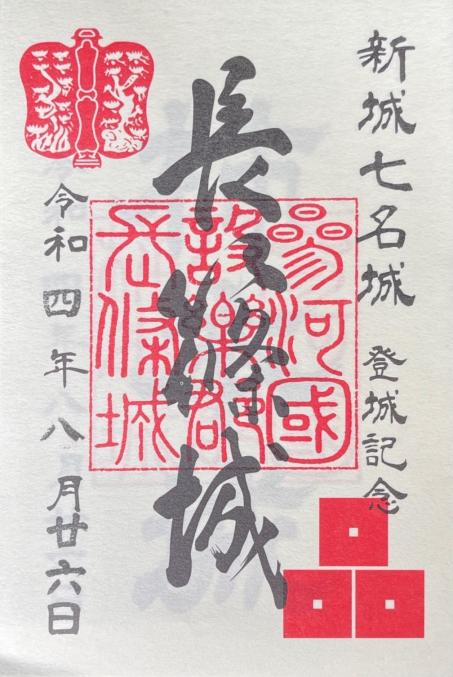 新城七名城 登城記念
長篠城
參河國
設樂郡
長條城
令和四年八月廿六日